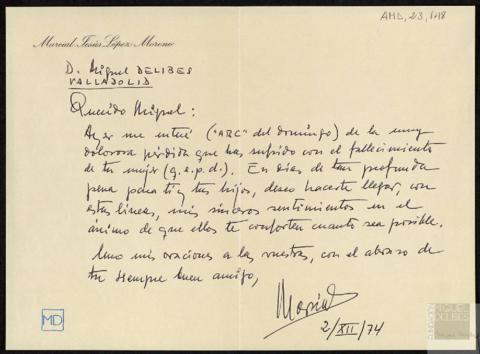 AMD, 23, 148
Marcial-Jesús López Moreno
D. Miguel DELIBES
VALLADOLID
Querido Miguel:
Ayer me enteré ("ABC" del domingo) de la muy
dolorosa pérdida que has sufrido con el fallecimiento
de tu mujer (q.e.p.d.). En días de tan profunda
pena para ti y tus hijos, deseo hacerte llegar, con
estas líneas, mis sinceros sentimientos en el
ánimo de que ellos te conforten cuanto sea posible.
Uno mis oraciones a las vuestras, con el abrazo de
tu siempre buen amigo,
Marcial
2/XII/74
MD
FUNDACIÓN
MIGUEL
DELIBES